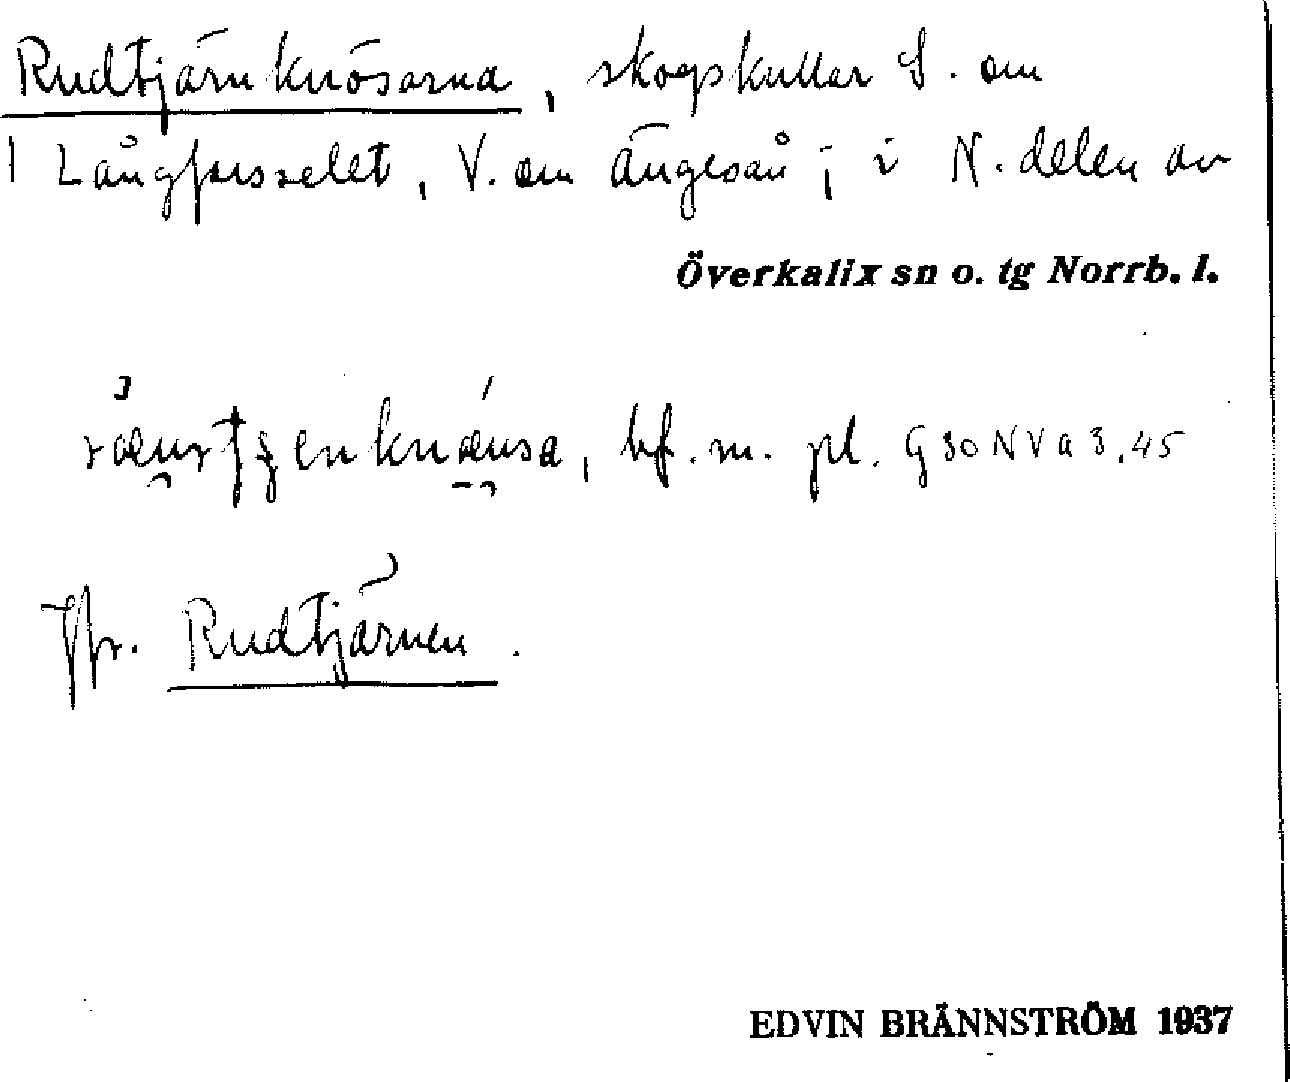 Rudtjärnknösarna, skogskullar S. om
Långforsselet, V. om Ängesån; i N. delen av
Överkalix sn o. tg Norrb. l.
bf. m. pl. G 30 NV a 3, 45
Jfr. Rudtjärnen.
EDVIN BRÄNNSTRÖM 1937